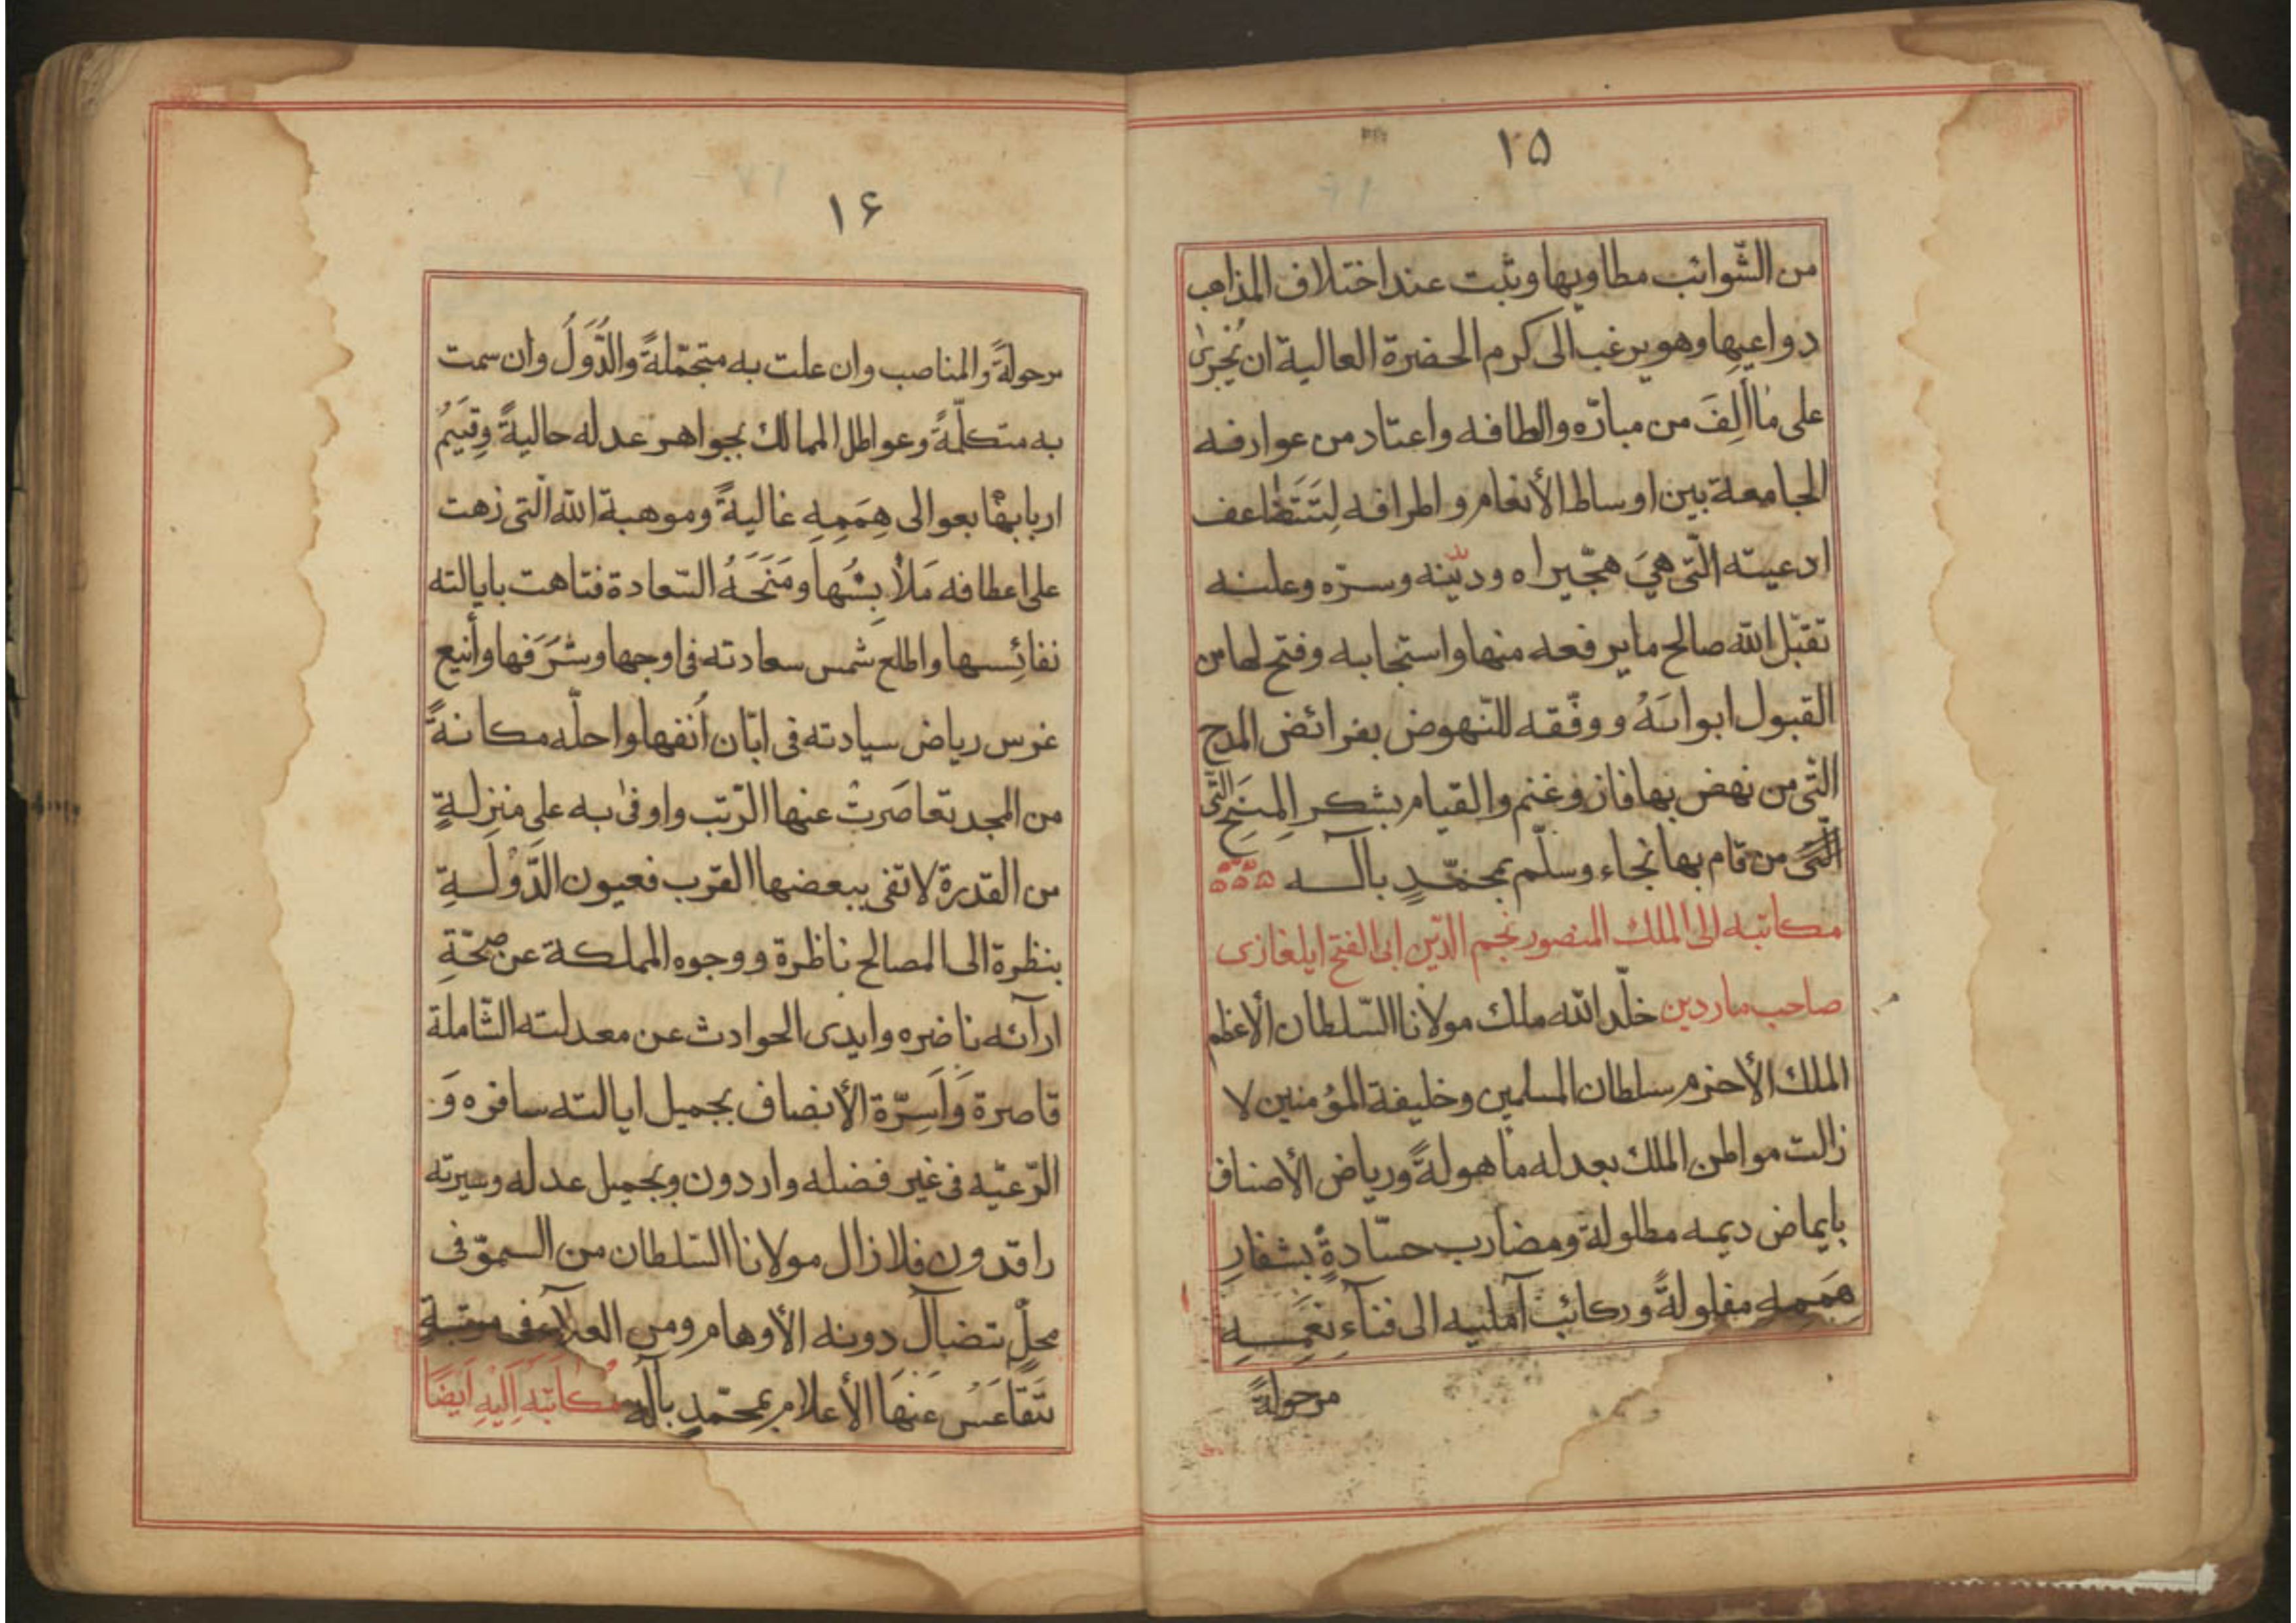 ١٥
من الشّوائب مطاويها وثبت عند اختلاف المذاهب
دواعيها وهو يرغب الى كرم الحضرة العالية ان يُجْرىٰ
على ما أُلِفَ من مبارّه والطافه واعتاد من عوارفه
الجامعة بين اوساط الأنعام واطرافه لِتَتَضٰاعف
ادعيته الّتى هىَ هجّيراه وديّنه وسرّه وعلنه
تقبّل الله صالح ما يرفعه منها واستجابه وفتح لها من
القبول ابوابَهُ ووفّقه للنّهوض بفرائض المدح
الّتى من نهض بها فاز وغنم والقيام بشكر المِنَحِ الّتى
الّتى من قام بها نجاء وسلّم بمحمّدٍ بآلـــه ۵۵۵
مكاتبه الى الملك المنصور نجم الدّين ابى الفتح ايلغازى
صاحب ماردين خلّد الله ملك مولانا السّلطان الأعظم
الملك الأحزم سلطان المسلمين وخليفة المؤمنين لا
زالت مواطن الملك بعدله ماهولةً ورياض الأصناف
بايماض ديمه مطلولة ومضارب حسّادةٍ بشفارِ
هِمَمِهِ مفلولةً وركائب آمليه الى فنآءِ نِعَمِـــهِ
مرحولةً
١۶
مرحولةً والمناصب وان علت به متجمّلةً والدُّوَلُ وان سمت
به متكلّمةً وعواطل الممالك بجواهر عدله حاليةً وقِيَمُ
اربابها بعوالى هِمَمِهِ غاليةً وموهبة الله الّتى زهت
على اعطافه مَلاٰبِسُها ومَنَحَهُ السّعادة فتاهت بايالته
نفائِسها واطلع شمس سعادته فى اوجها وشَرَفها وأنيع
غرس رياض سيادته فى ابّان اُنفها واحلّه مكانةً
من المجد تقاصَرتْ عنها الرّتب واوفىٰ به على منزلـةٍ
من القدرة لا تفى ببعضها القرب فعيون الدَّوْلَـةِ
بنظرة الى المصالح ناظرة ووجوه المملكة عن صحّةِ
ارآئه ناضره وايدى الحوادث عن معدلته الشّاملة
قاصرة وَاَسِرّة الأنصاف بجميل ايالته سافره وَ
الرّعيّه فى غير فضله واردون وبجميل عدله وسيرته
راقدون فلا زال مولانا السّلطان من السموّ فى
محلّ تتضآل دونه الأوهام ومن العلآءِ فى مرتبةٍ
تَتَقٰاعَسُ عَنهَا الأعلام بمحمّدٍ بآله مُكٰاتَبَه اِلَيْهِ اَيضًا